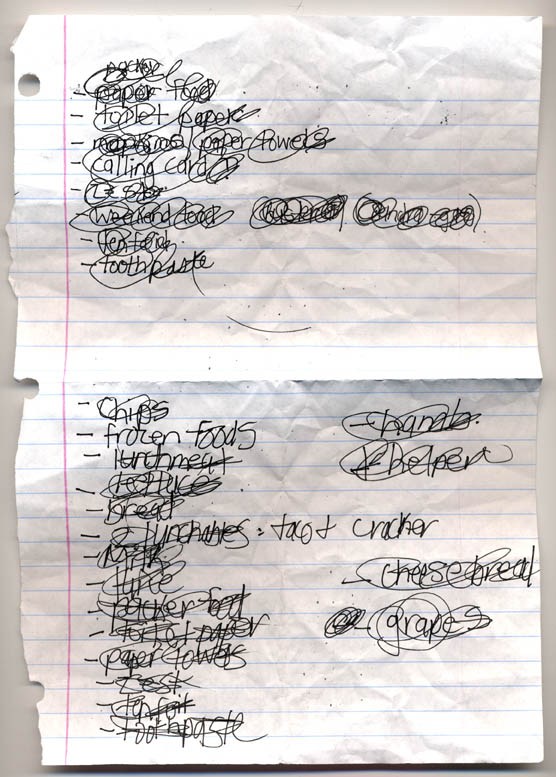 - paper food
- toilet paper
- napkins/paper towels
- calling card
- Zest
- weekend food
- toothpaste
- Chips
- frozen foods
- lunchmeat
- lettuce
- bread
- 2 lunchables = taco + cracker
- Milk
- juice
- packer food
- toilet paper
- paper towels
- Zest
- tin foil
- toothpaste
- hamb.
- helper
- cheese bread
- grapes